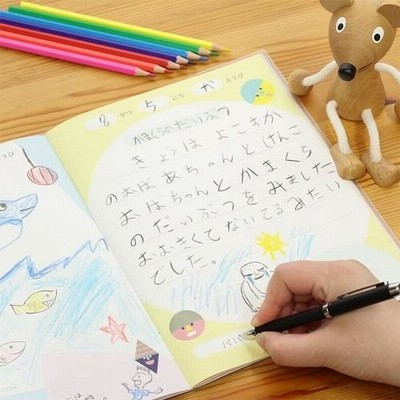 8 がつ 5 にち か ようび
かまくらのだいぶつ
きょうはよこすか
のおばあちゃんとけんこ
おばちゃんとかまくら
のだいぶつをみました
おおきくてないてるみたい
でした。